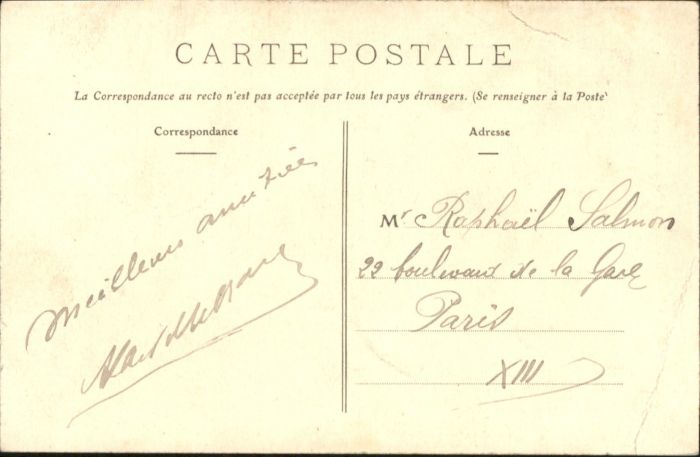 CARTE POSTALE
La Correspondance au recto n'est pas acceptée par tous les pays étrangers. (Se renseigner à la Poste)
Correspondance
Meilleures amitiés
Adresse
Mr Raphaël Salmon
22 boulevard de la Gare
Paris
XIII